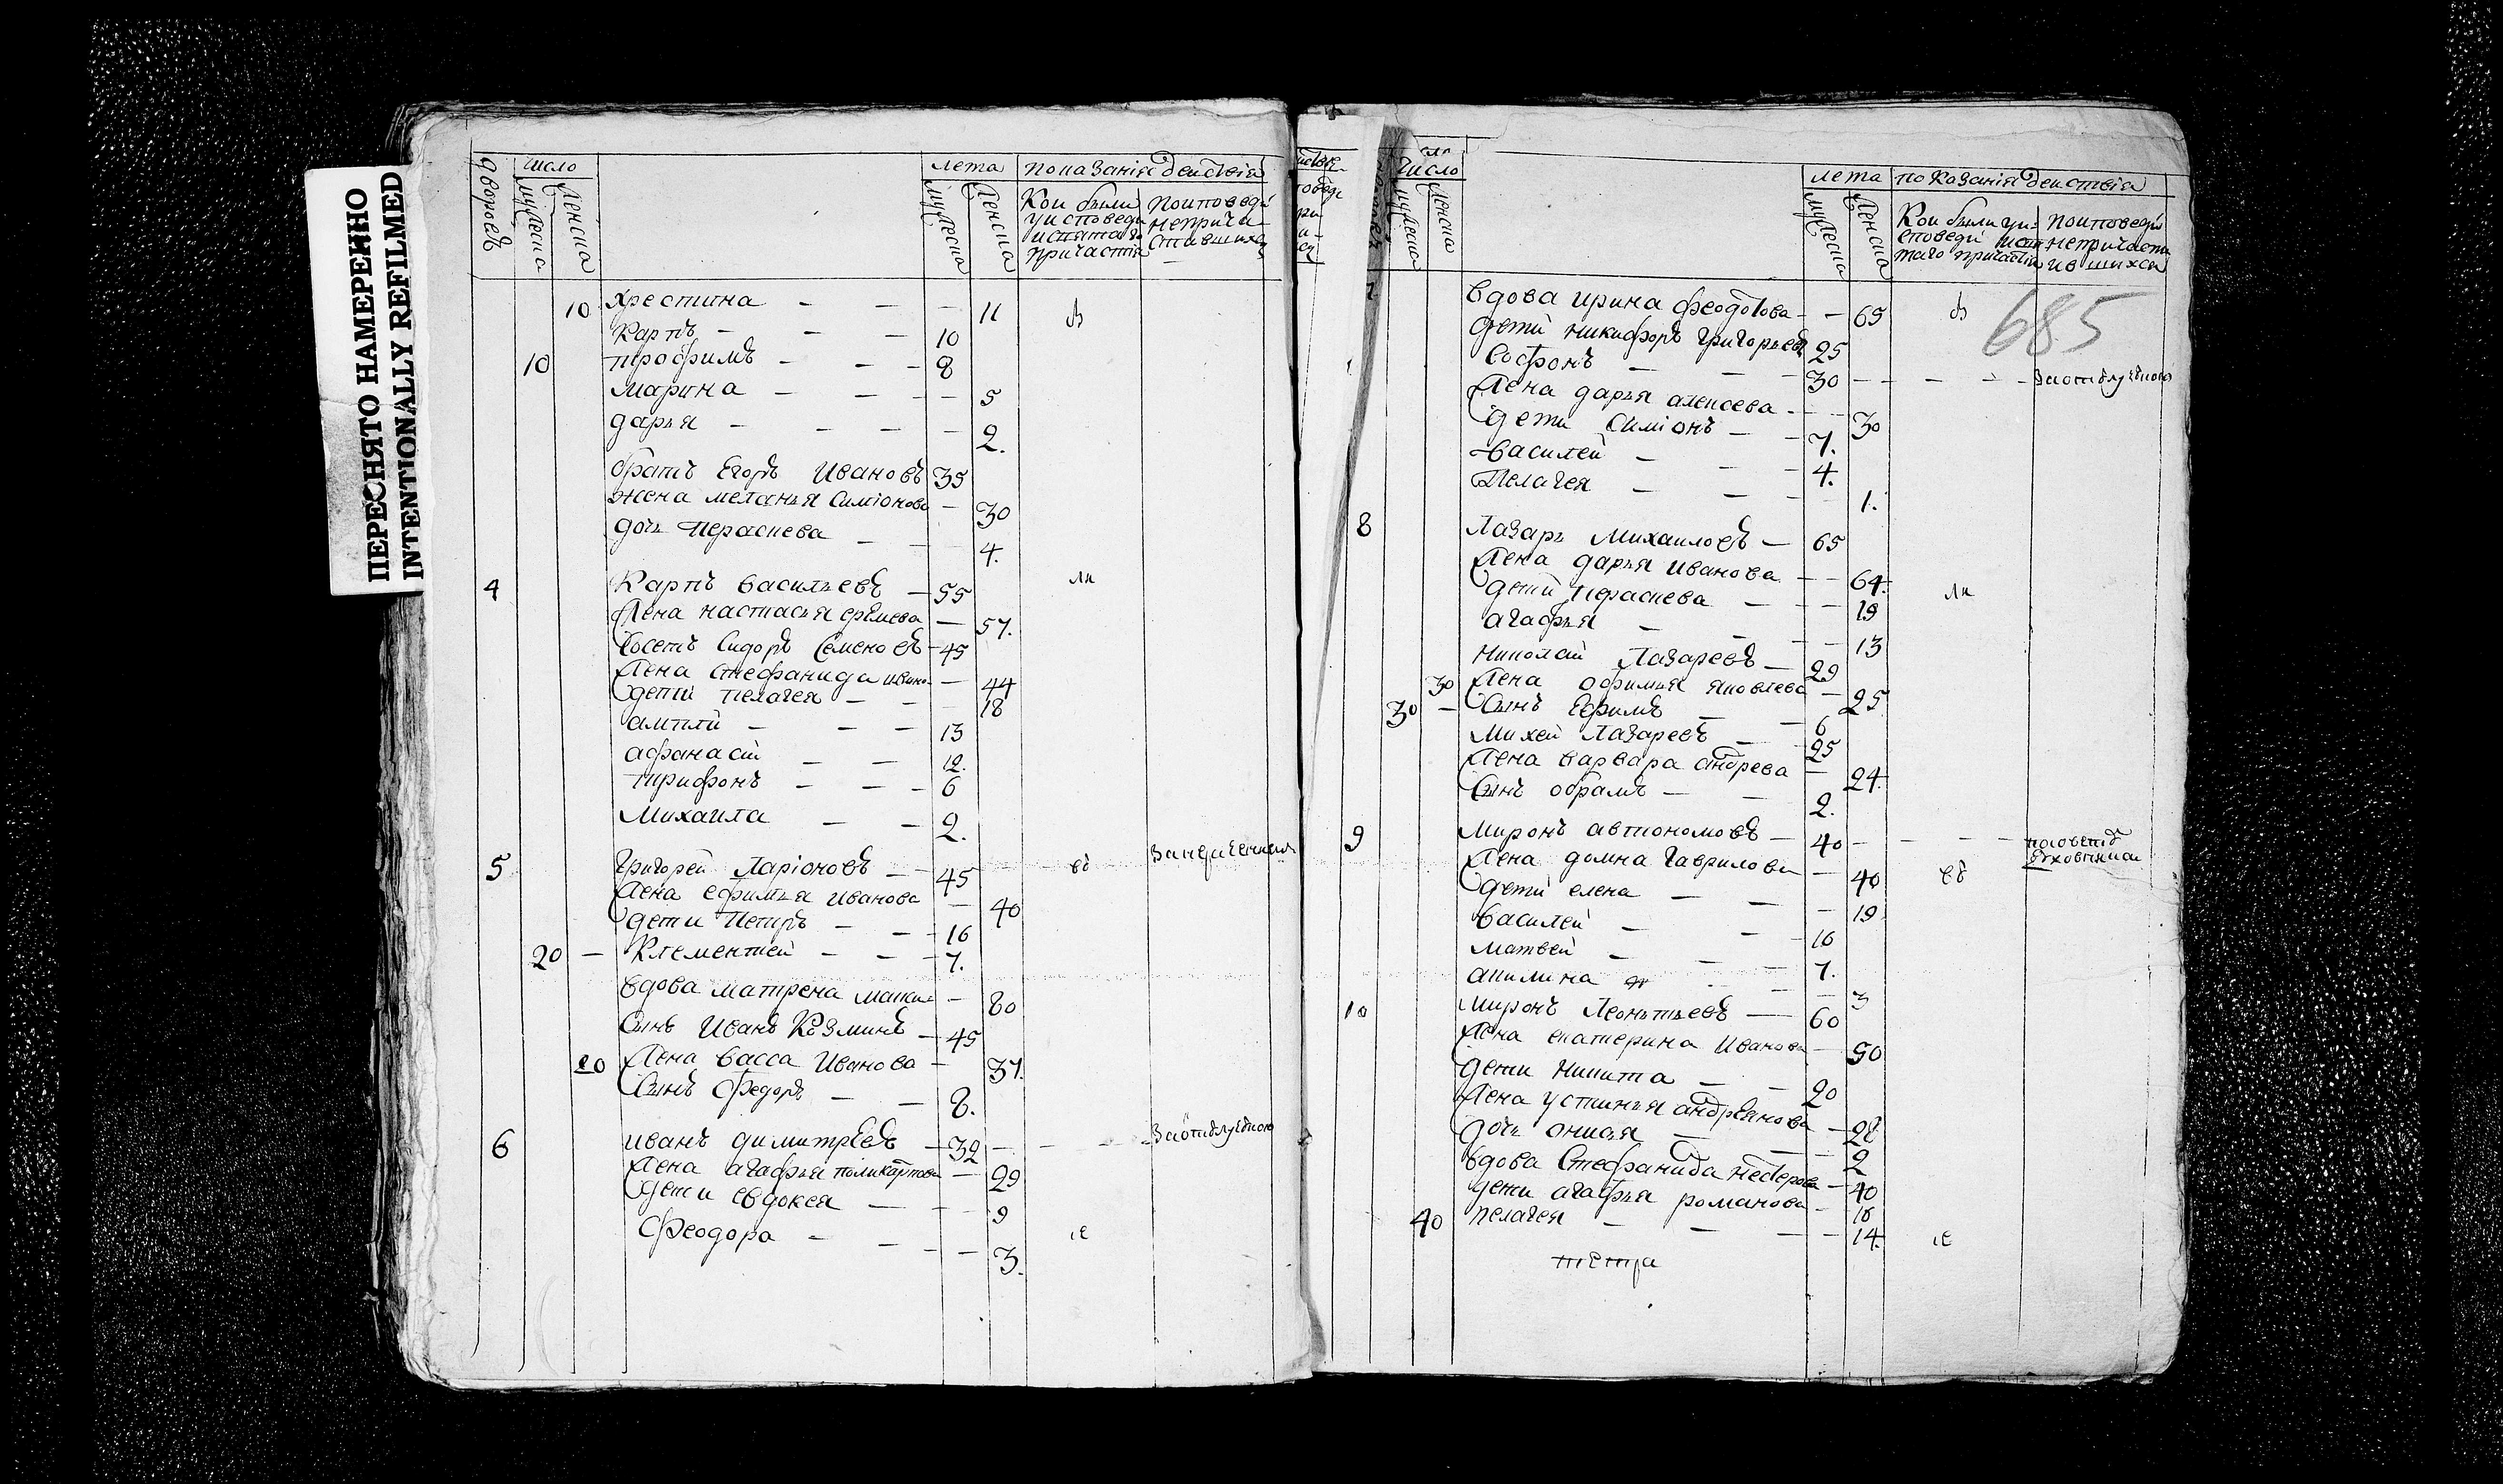 ПЕРЕСНЯТО НАМЕРЕННО
INTENTIONALLY REFILMED
дворовъ
число
мужеска
женска
лета
мужеска
женска
показанія действія
Кои были
у исповеди
и святаго
причастія
по исповеди
непричастившихся
10 хрестина - - - 11 въ
Карпъ - - - 10
10 трофимъ - - - 8
марина - - - 5
дарья - - - 2.
братъ Егоръ Ивановъ 35
жена меланья Симіонова - 30
дочь Пераскева - - 4.
4 Карпъ васильевъ - 55 ли
Жена настасья еремева - 57.
Сидоръ Семеновъ - 45
Жена Стефанида - 44
дети пелагея - - 18
- - - 13
афанасій - - 12.
трифонъ - - - 6
Михаила - - 2.
5 Григорей Ларіоновъ - 45 въ
Жена ефимья Иванова - 40
дети Петръ - - - 16
20 - Клементей - - - 7.
вдова матрена - 80
Сынъ Иванъ Козминъ - 45
20 Жена васса Иванова - 37.
Сынъ Федоръ - - 8.
6 иванъ димитревъ - 32 - - - За отлучкою
Жена агафья поликарпова - 29
дети евдокея - - 9
Феодора - - - - 3. се
число
мужеска
женска
лета
мужеска
женска
показанія действія
Кои были у исповеди и святаго причастія
по исповеди непричастившихся
685
вдова ирина феодотова - - 65 въ
дети никифоръ григорьевъ 25
Софронъ - - - 30 - - - - За отлучкою
Жена дарья алексева - - 30
дети Симіонъ - - 7.
василей - - - 4.
Пелагея - - - - 1.
8 Лазарь Михаиловъ - 65
Жена дарья иванова - - 64. ли
дети пераскева - - - 19
агафья - - - 13
николай Лазаревъ - 29
30 Жена офимья яковлева - 25
30 - Сынъ Ефимъ - - 6
Михей Лазаревъ - 25
Жена варвара андрева - 24.
Сынъ обрамъ - - 2.
9 Миронъ автономовъ - 40 - - -
Жена домна Гаврилова - 40 въ
дети елена - - - 19
василей - - 16
матвей - - - 7.
акилина - - 3
10 Миронъ Леонтьевъ - 60
Жена екатерина Иванова - 50
дети никита - - 20
Жена устинья андреянова - 28
дочь онисья - - 2
вдова Стефанида нестерова - 40
дети агафья романова - 16
40 пелагея - - - - 14. се